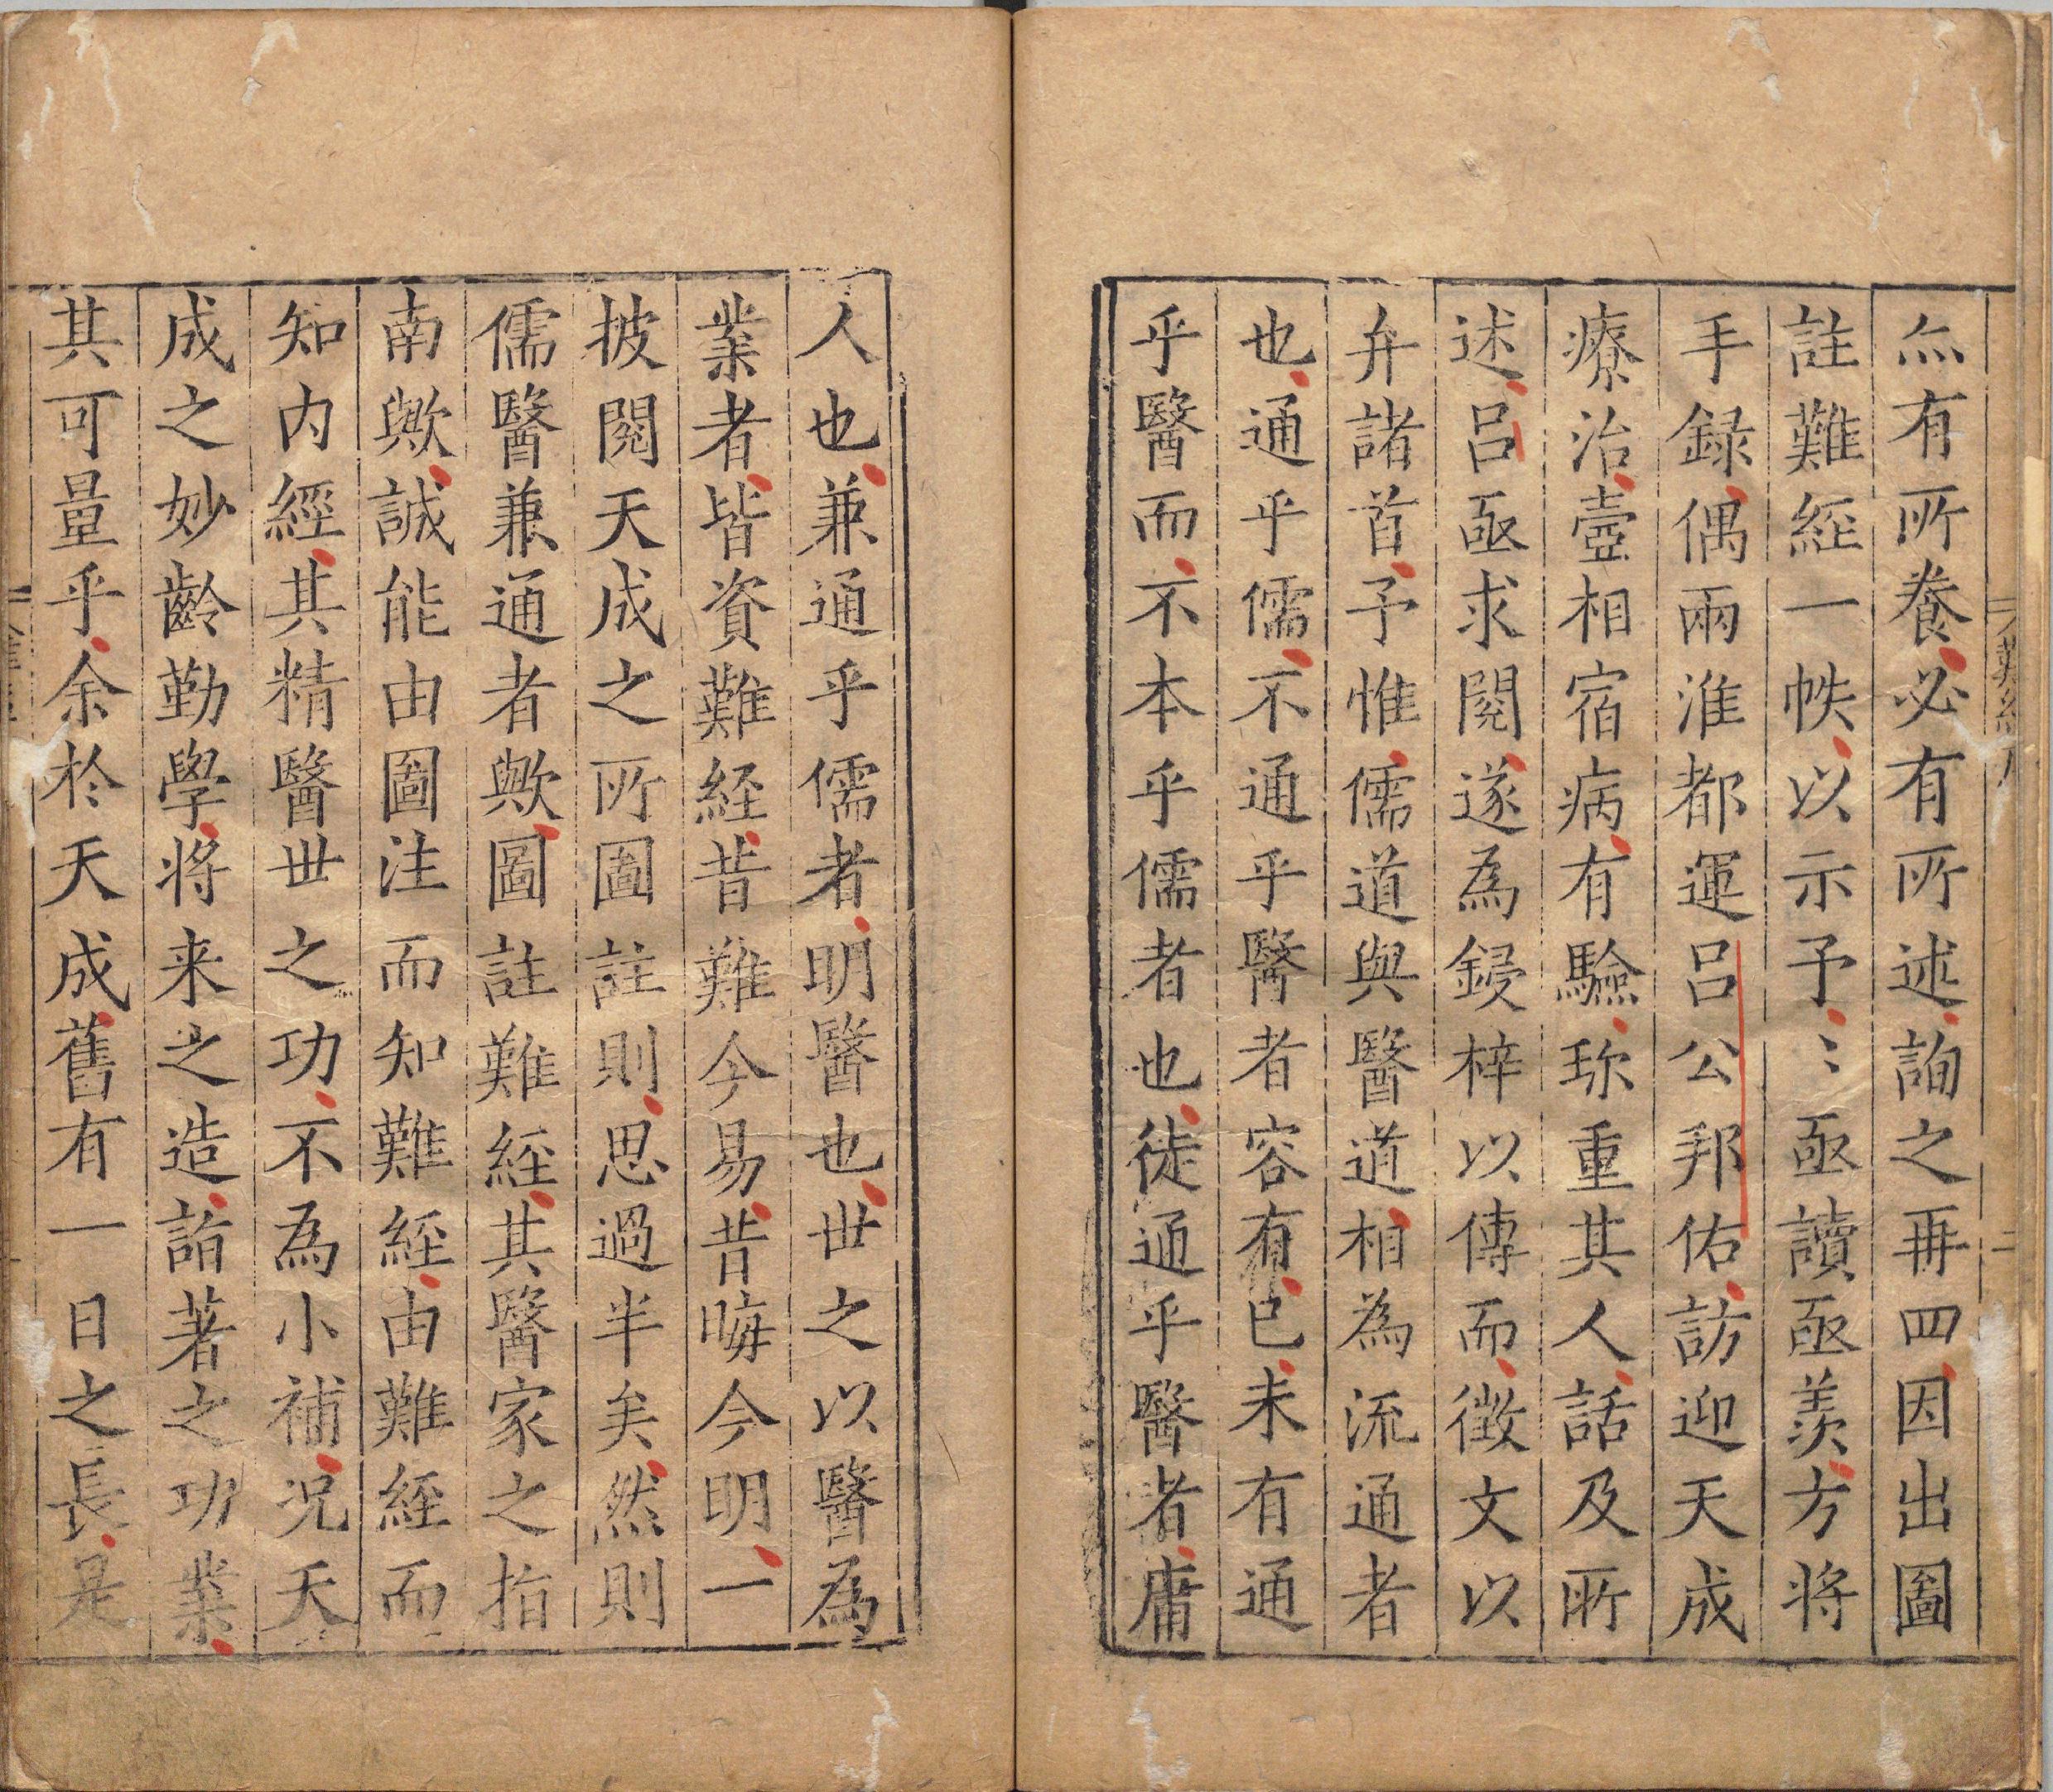 灬有所養必有所述詢之再四因出圖
註難經一帙以示予〻亟讀亟羨方将
手録偶兩淮都運吕公邦佑訪迎天成
療治臺相宿病有驗珎重其人話及所
述吕亟求閱遂為鋟梓以傳而徴文以
弁諸首予惟儒道與醫道相為流通者
也通乎儒不通乎醫者容有已未有通
乎醫而不本乎儒者也徒通乎醫者庸
人也兼通乎儒者明醫也世之以醫為
業者皆資難経昔難今易昔晦今明一
披閱天成之所圖註則思過半矣然則
儒醫兼通者歟圖註難經其醫家之指
南歟誠能由圖注而知難經由難經而
知内經其精醫世之功不為小補况天
成之妙齡勤學将来之造詣著之功業
其可量乎余於天成舊有一日之長是